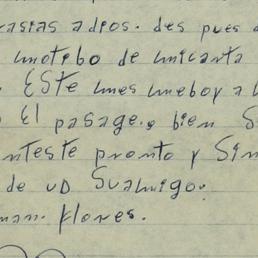 rasias adios. des pues d
motibo de micarta
ESte mes meboy a l
El pasage. bien S
nteste pronto y Sin
de UD SuAmigo.
man. flores.